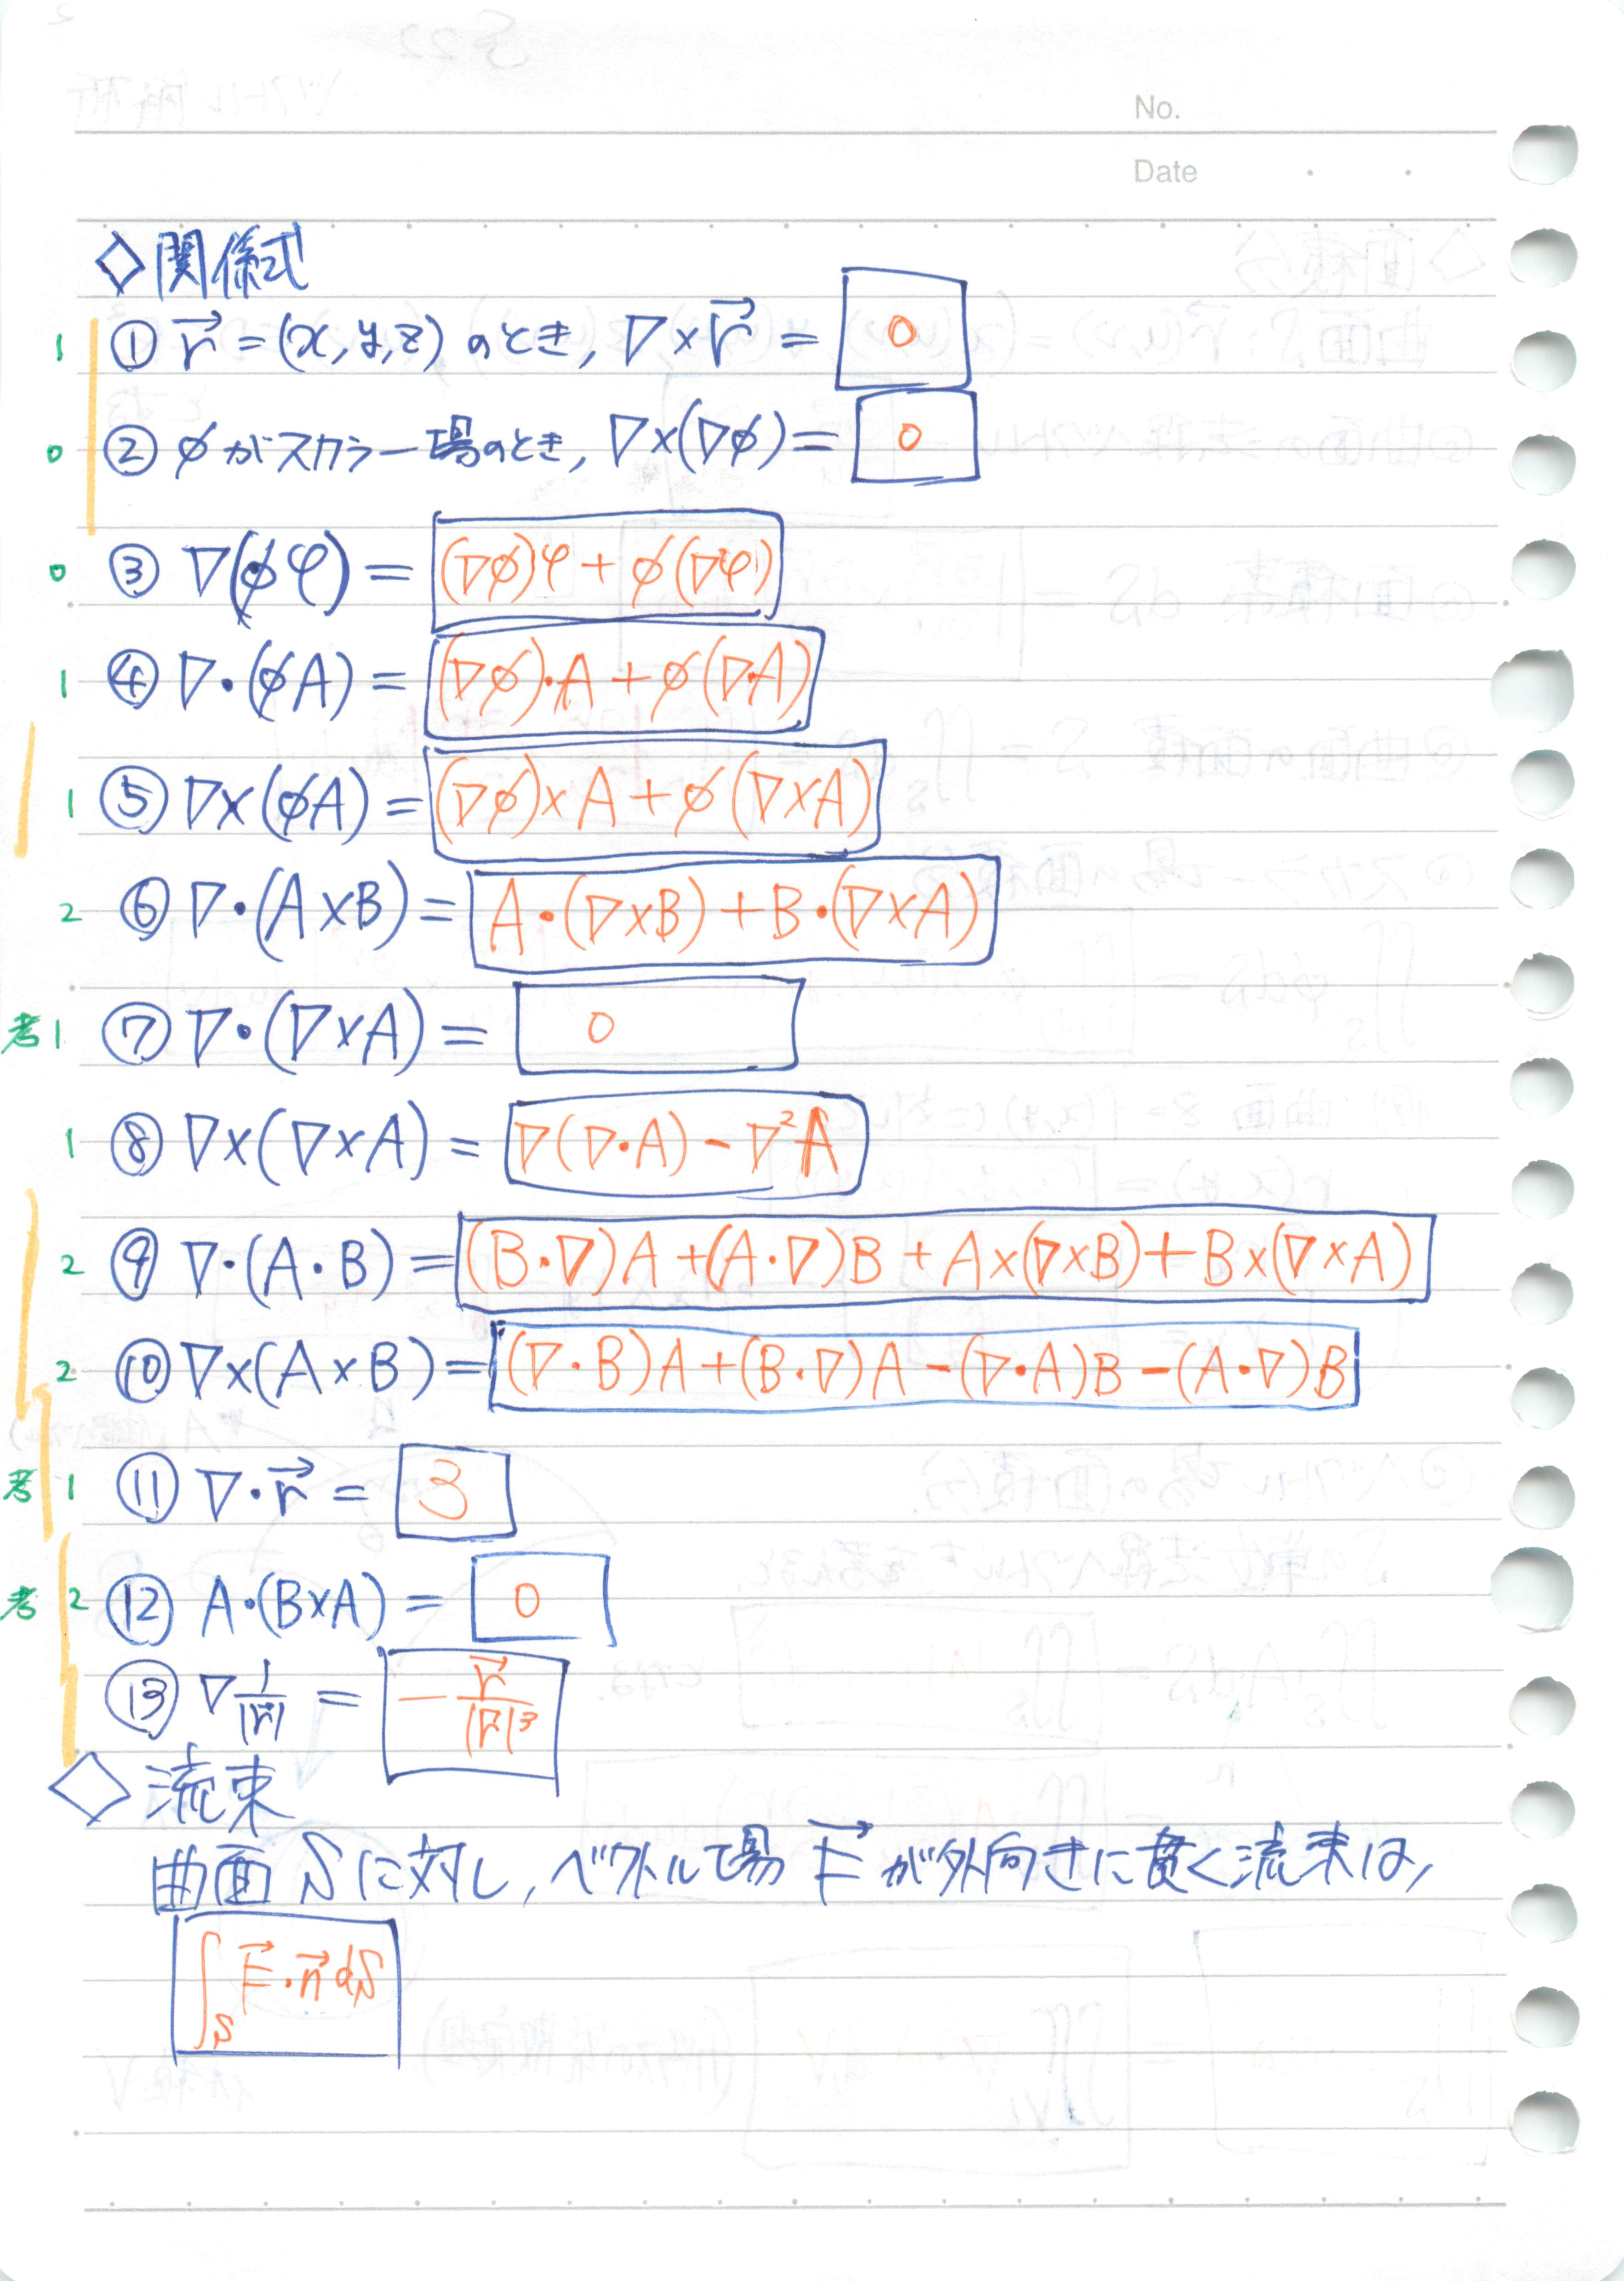 No.
Date
◇関係式
1 ① r⃗ = (x, y, z) のとき, ∇×r⃗ = 0
0 ② φがスカラー場のとき, ∇×(∇φ) = 0
0 ③ ∇(φψ) = (∇φ)ψ + φ(∇ψ)
1 ④ ∇・(φA) = (∇φ)・A + φ(∇・A)
1 ⑤ ∇×(φA) = (∇φ)×A + φ(∇×A)
2 ⑥ ∇・(A×B) = A・(∇×B) + B・(∇×A)
考1 ⑦ ∇・(∇×A) = 0
1 ⑧ ∇×(∇×A) = ∇(∇・A) - ∇²A
2 ⑨ ∇・(A・B) = (B・∇)A + (A・∇)B + A×(∇×B) + B×(∇×A)
2 ⑩ ∇×(A×B) = (∇・B)A + (B・∇)A - (∇・A)B - (A・∇)B
考1 ⑪ ∇・r⃗ = 3
考2 ⑫ A・(B×A) = 0
⑬ ∇ 1/|r⃗| = - r⃗/|r⃗|³
◇流束
曲面 S に対し, ベクトル場 F⃗ が外向きに貫く流束は,
∫_S F⃗・n⃗ dS